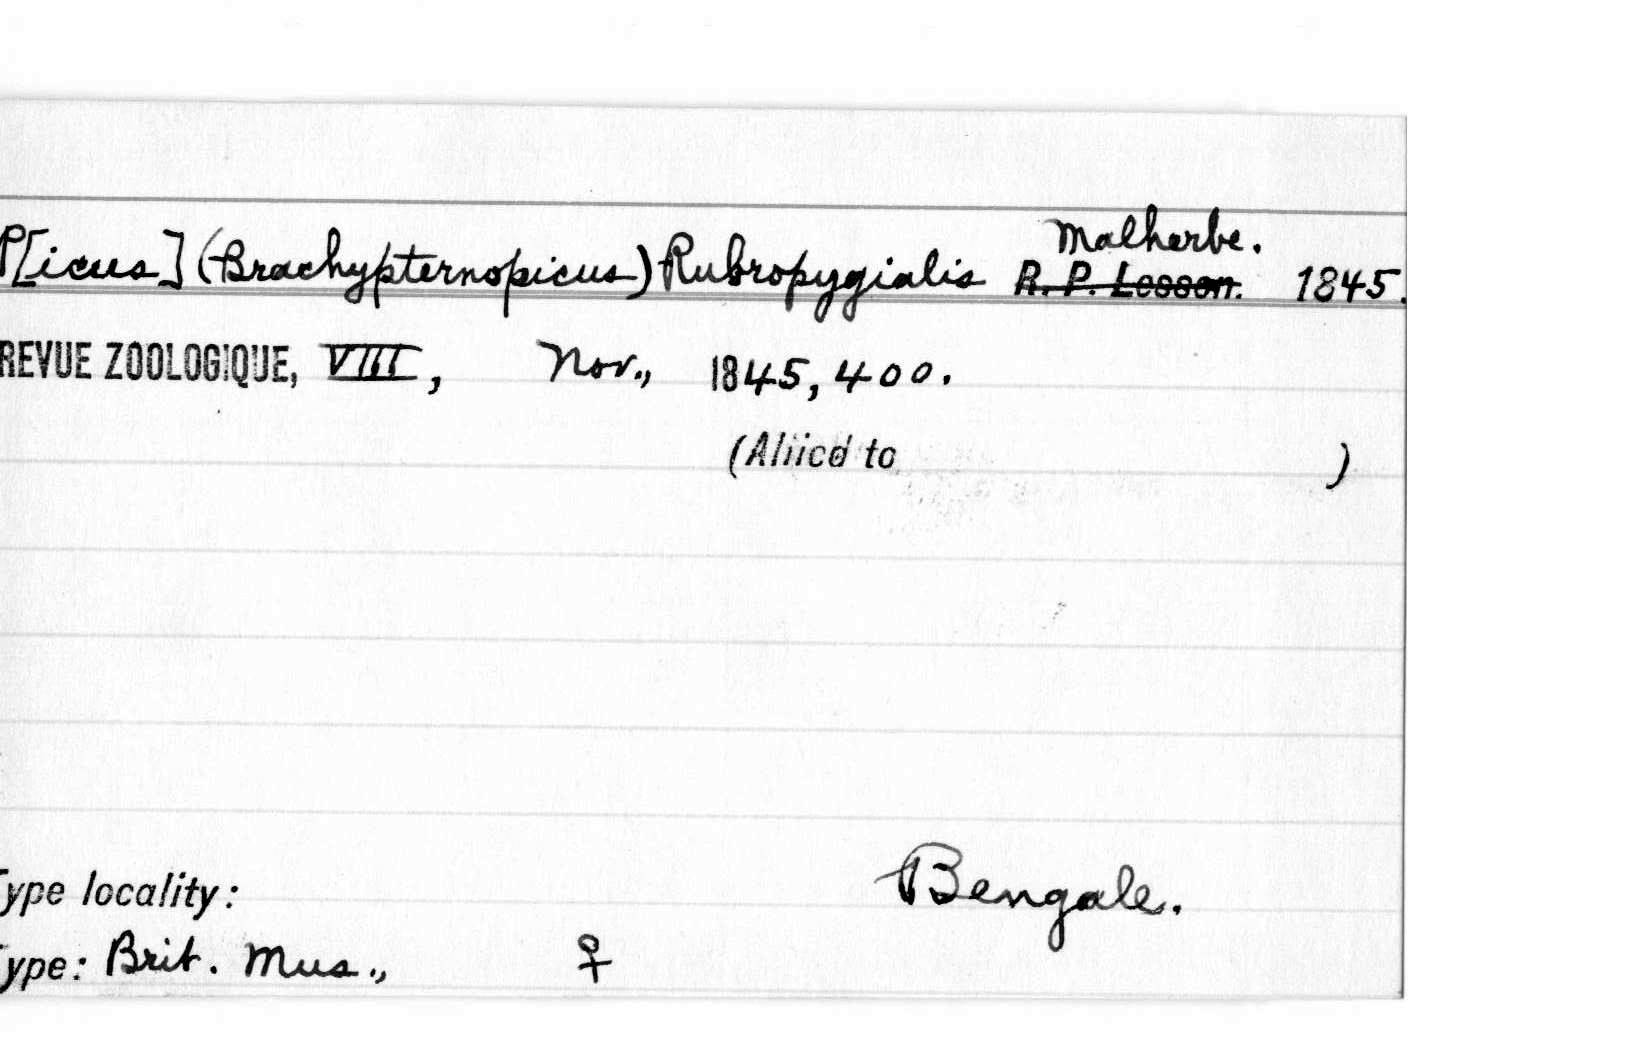 P[icus] (Brachypternopicus) Rubropygialis Malherbe. R. P. Lesson. 1845.
REVUE ZOOLOGIQUE, VIII, Nov., 1845, 400.
(Allied to )
Type locality: Bengale.
Type: Brit. Mus., ♀